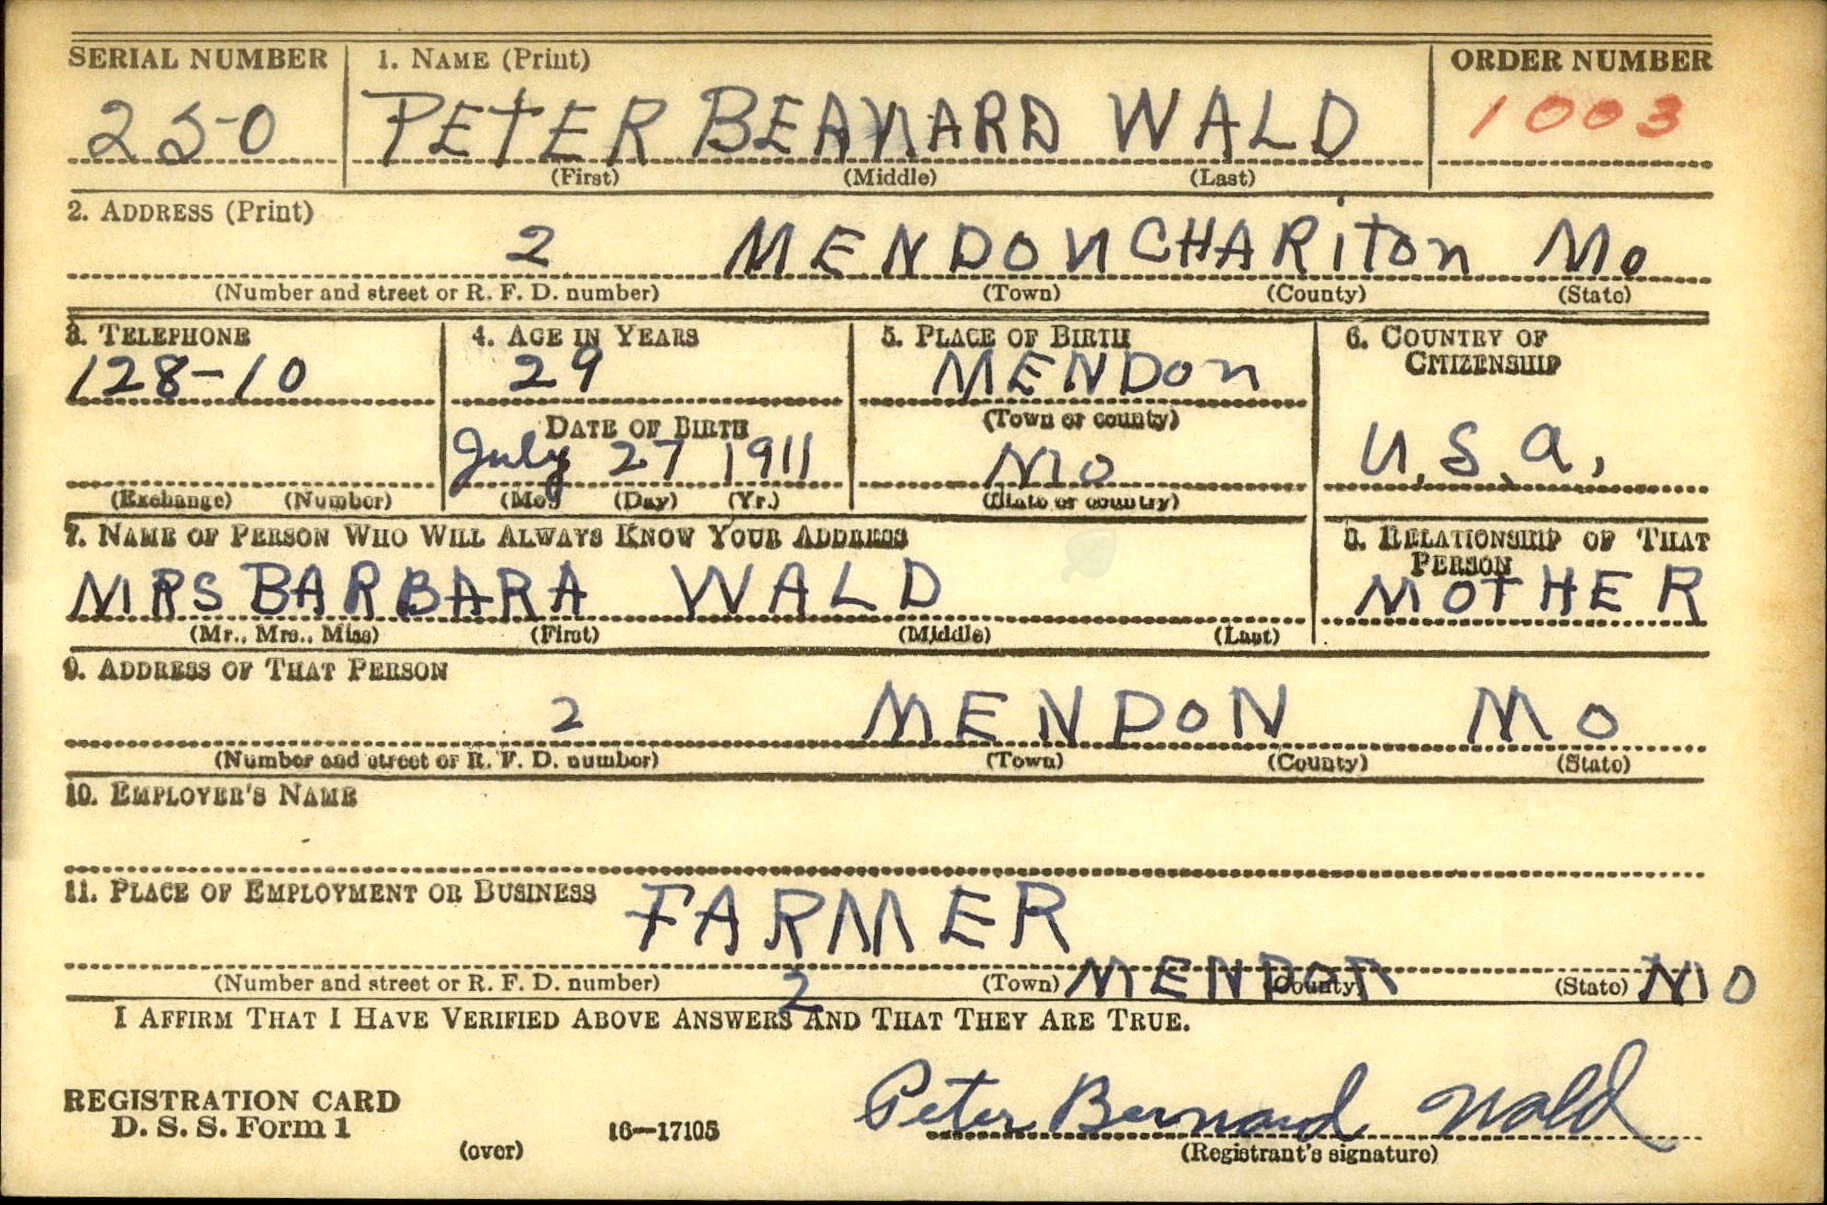 SERIAL NUMBER 1. NAME (Print) ORDER NUMBER
250 PETER BERNARD WALD 1003
(First) (Middle) (Last)
2. ADDRESS (Print)
2 MENDON CHARITON Mo
(Number and street or R. F. D. number) (Town) (County) (State)
3. TELEPHONE 4. AGE IN YEARS 5. PLACE OF BIRTH 6. COUNTRY OF
CITIZENSHIP
128-10 29 MENDON
DATE OF BIRTH (Town or county)
July 27 1911 MO U.S.A.
(Exchange) (Number) (Mo.) (Day) (Yr.) (State or country)
7. NAME OF PERSON WHO WILL ALWAYS KNOW YOUR ADDRESS 8. RELATIONSHIP OF THAT
PERSON
MRS BARBARA WALD MOTHER
(Mr., Mrs., Miss) (First) (Middle) (Last)
9. ADDRESS OF THAT PERSON
2 MENDON MO
(Number and street or R. F. D. number) (Town) (County) (State)
10. EMPLOYER'S NAME
11. PLACE OF EMPLOYMENT OR BUSINESS
FARMER
(Number and street or R. F. D. number) 2 (Town) MENDON (County) (State) MO
I AFFIRM THAT I HAVE VERIFIED ABOVE ANSWERS AND THAT THEY ARE TRUE.
REGISTRATION CARD
D. S. S. Form 1 Peter Bernard Wald
(over) 16—17105 (Registrant's signature)